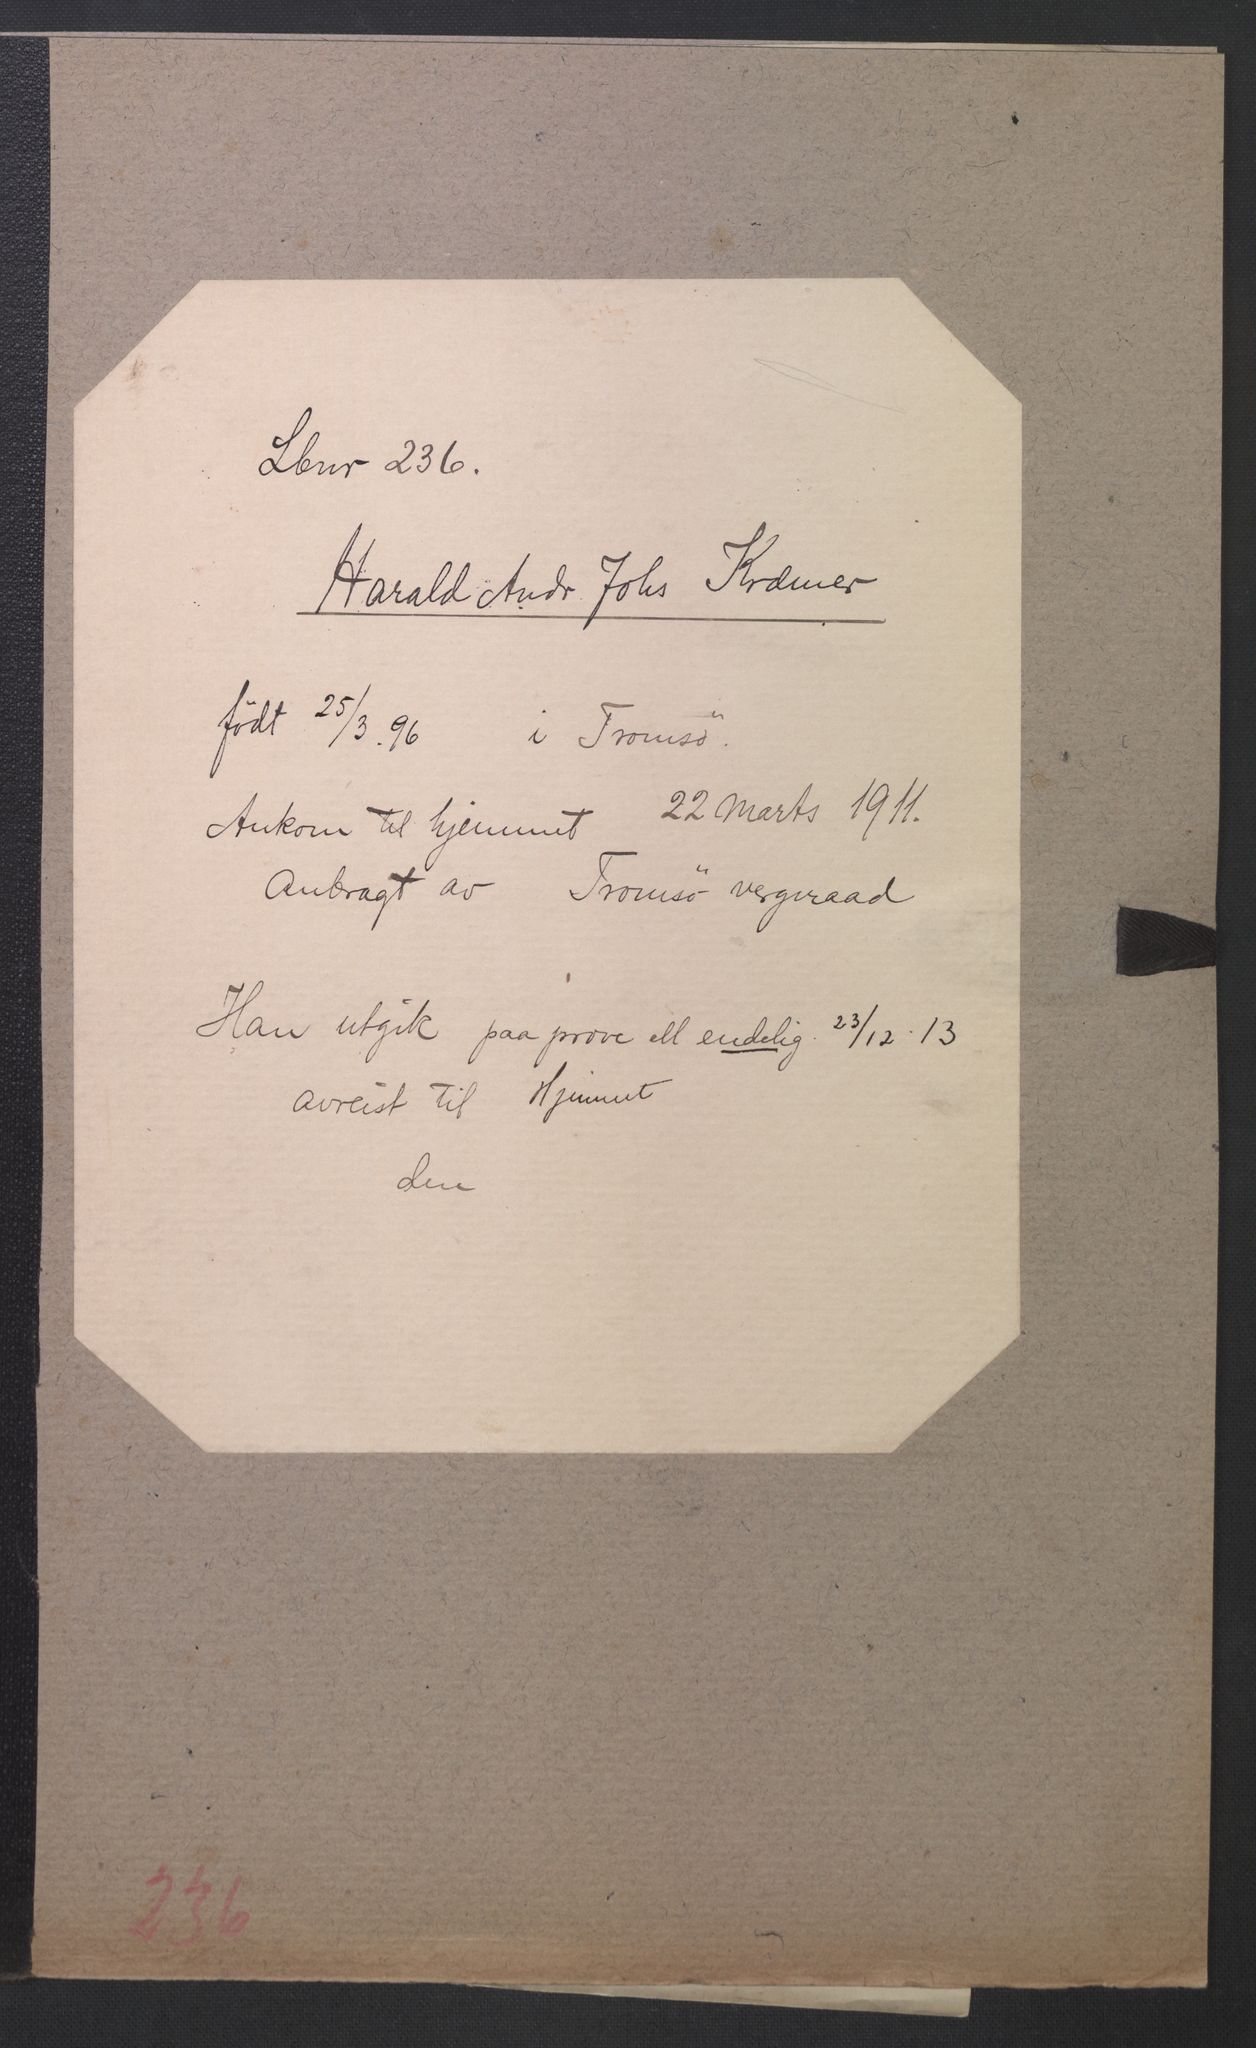 Lbnr 236.
Harald Andr. Johs Kræmer
födt 25/3.96 i Tromsö.
Ankom til hjemmet 22 Marts 1911.
Anbragt av Tromsö vergeraad
Han utgik paa prøve ell endelig. 23/12.13
avreist til Hjemmet
den
236